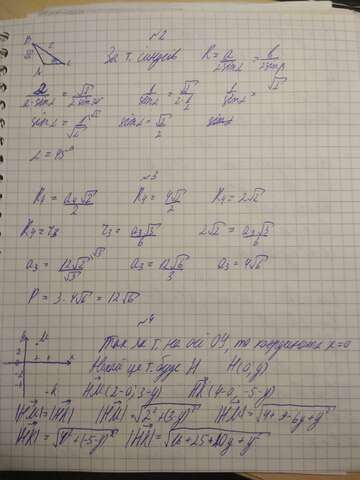 №2
За т. синусів R = a/2sinα = b/2sinβ
a/2·sinα = √2/2sin30 1/sinα = √2/2·½ 1/sinα = √2
sinα = 1/√2 sinα = √2/2
α = 45°
№3
R₄ = a₄√2/2 R₄ = 4√2/2 R₄ = 2√2
R₄ = r₃ r₃ = a₃√3/6 2√2 = a₃√3/6
a₃ = 12√2/√3 a₃ = 12√6/3 a₃ = 4√6
P = 3·4√6 = 12√6
№4
Так як т. на осі OY, то координата x=0
Нехай це т. буде H H(0;y)
HM(2-0; 3-y) HK(4-0; -5-y)
|HM|=|HK| |HM|=√2²+(3-y)² |HM|=√4+9-6y+y²
|HK|=√4²+(-5-y)² |HK|=√16+25+10y+y²